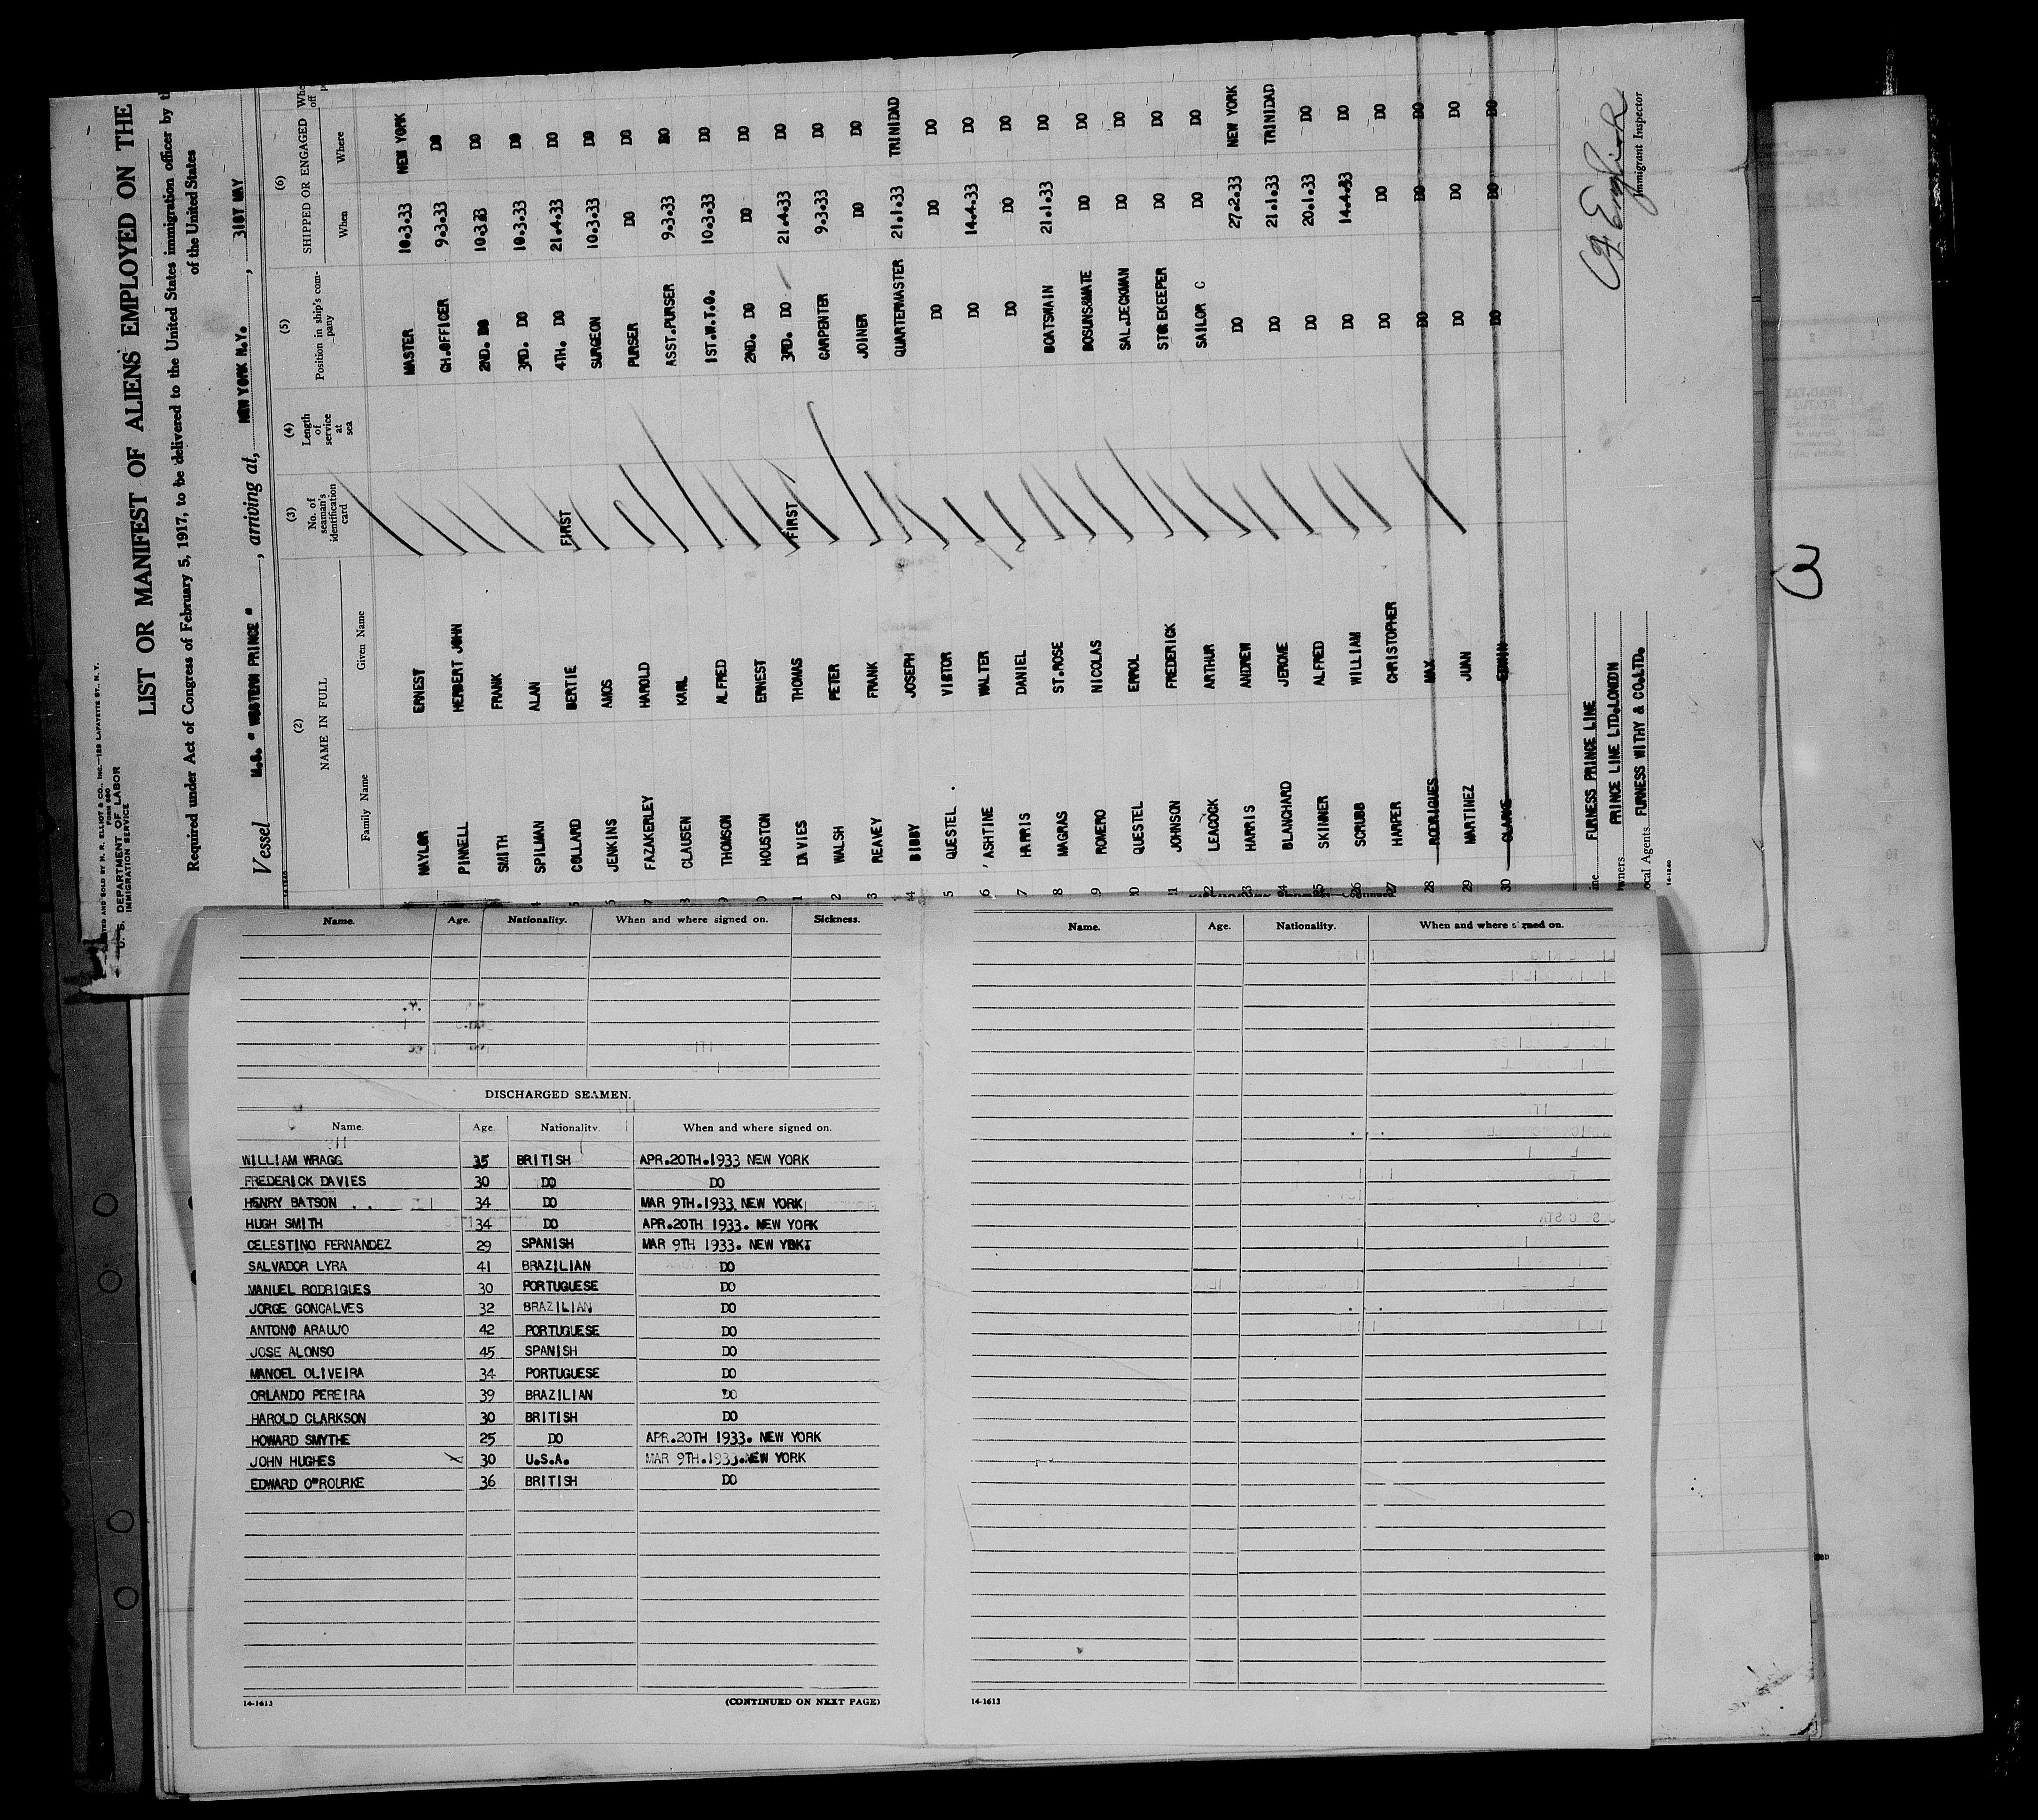 PRINTED AND SOLD BY M. R. ELLIOT & CO., INC.—129 LAFAYETTE ST., N. Y.
FORM 680
U. S. DEPARTMENT OF LABOR
IMMIGRATION SERVICE
LIST OR MANIFEST OF ALIENS EMPLOYED ON THE
Required under Act of Congress of February 5, 1917, to be delivered to the United States immigration officer by
of the United States
Vessel M.S. " WESTERN PRINCE " , arriving at, NEW YORK N.Y. , 31ST MAY
(2) (3) (4) (5) (6)
NAME IN FULL No. of seaman's identification card Length of service at sea Position in ship's company SHIPPED OR ENGAGED
Family Name Given Name When Where
NAYLOR ERNEST MASTER 10.3.33 NEW YORK
PINNELL HERBERT JOHN CH.OFFICER 9.3.33 DO
SMITH FRANK 2ND. DO 10.3.33 DO
4 SPILMAN ALAN 3RD. DO 10.3.33 DO
5 COLLARD BERTIE FIRST 4TH. DO 21.4.33 DO
JENKINS AMOS SURGEON 10.3.33 DO
7 FAZAKERLEY HAROLD PURSER DO DO
8 CLAUSEN KARL ASST.PURSER 9.3.33 DO
9 THOMSON ALFRED 1ST.W.T.O. 10.3.33 DO
0 HOUSTON ERNEST 2ND. DO DO DO
1 DAVIES THOMAS FIRST 3RD. DO 21.4.33 DO
2 WALSH PETER CARPENTER 9.3.33 DO
3 REAVEY FRANK JOINER DO DO
14 BIBBY JOSEPH QUARTERMASTER 21.1.33 TRINIDAD
5 QUESTEL . VICTOR DO DO DO
6 ASHTINE WALTER DO 14.4.33 DO
7 HARRIS DANIEL DO DO DO
8 MAGRAS ST.ROSE BOATSWAIN 21.1.33 DO
9 ROMERO NICOLAS BOSUNS&MATE DO DO
20 QUESTEL ERROL SAL.DECKMAN DO DO
21 JOHNSON FREDERICK STOREKEEPER DO DO
22 LEACOCK ARTHUR SAILOR C DO DO
23 HARRIS ANDREW DO 27.2.33 NEW YORK
24 BLANCHARD JEROME DO 21.1.33 TRINIDAD
25 SKINNER ALFRED DO 20.1.33 DO
26 SCRUBB WILLIAM DO 14.4.33 DO
27 HARPER CHRISTOPHER DO DO DO
28 RODRIGUES MAX DO DO DO
29 MARTINEZ JUAN DO DO DO
30 CLARKE EDWIN DO DO DO
ine FURNESS PRINCE LINE
wners PRINCE LINE LTD.LONDON
ocal Agents FURNESS WITHY & CO.LTD.
14-1240
Immigrant Inspector
3
Name. Age. Nationality. When and where signed on. Sickness.
DISCHARGED SEAMEN.
Name. Age. Nationality. When and where signed on.
WILLIAM WRAGG 35 BRITISH APR.20TH.1933 NEW YORK
FREDERICK DAVIES 30 DO DO
HENRY BATSON 34 DO MAR 9TH.1933 NEW YORK
HUGH SMITH 34 DO APR.20TH 1933. NEW YORK
CELESTINO FERNANDEZ 29 SPANISH MAR 9TH 1933. NEW YBKT
SALVADOR LYRA 41 BRAZILIAN DO
MANUEL RODRIGUES 30 PORTUGUESE DO
JORGE GONCALVES 32 BRAZILIAN DO
ANTONO ARAUJO 42 PORTUGUESE DO
JOSE ALONSO 45 SPANISH DO
MANOEL OLIVEIRA 34 PORTUGUESE DO
ORLANDO PEREIRA 39 BRAZILIAN DO
HAROLD CLARKSON 30 BRITISH DO
HOWARD SMYTHE 25 DO APR.20TH 1933. NEW YORK
JOHN HUGHES 30 U.S.A. MAR 9TH.1933.NEW YORK
EDWARD O"ROURKE 36 BRITISH DO
14-1613 (CONTINUED ON NEXT PAGE)
Name. Age. Nationality. When and where signed on.
14-1613